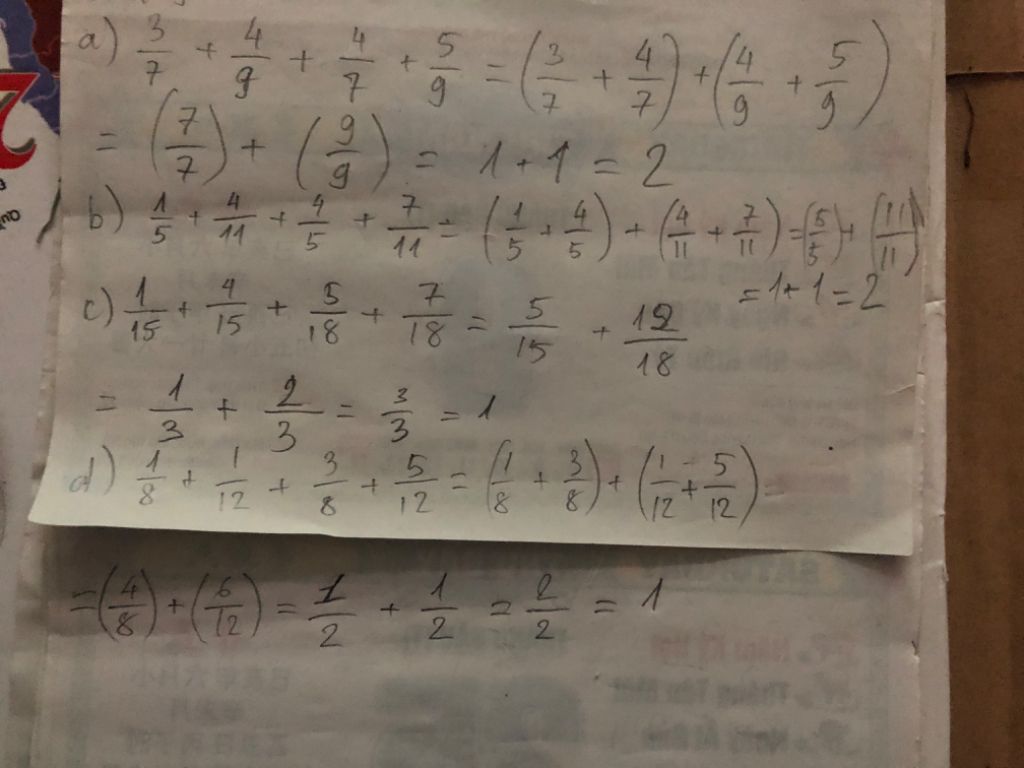 a) 3/7 + 4/9 + 4/7 + 5/9 = (3/7 + 4/7) + (4/9 + 5/9)
= (7/7) + (9/9) = 1 + 1 = 2
b) 1/5 + 4/11 + 4/5 + 7/11 = (1/5 + 4/5) + (4/11 + 7/11) = (5/5) + (11/11)
= 1 + 1 = 2
c) 1/15 + 4/15 + 5/18 + 7/18 = 5/15 + 12/18
= 1/3 + 2/3 = 3/3 = 1
d) 1/8 + 1/12 + 3/8 + 5/12 = (1/8 + 3/8) + (1/12 + 5/12) =
= (4/8) + (6/12) = 1/2 + 1/2 = 2/2 = 1